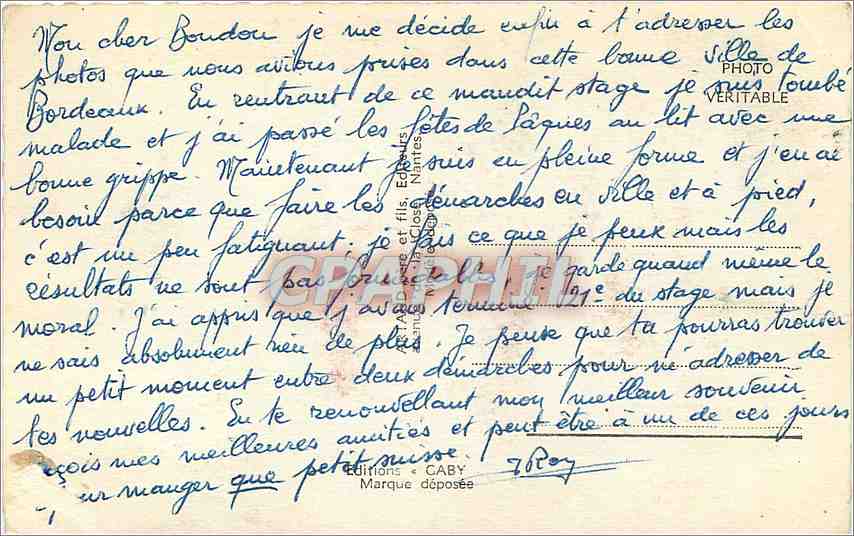 Mon cher Boudou je me décide enfin à t'adresser les
photos que nous avions prises dans cette bonne ville de
PHOTO
Bordeaux. En rentrant de ce maudit stage je suis tombé
VERITABLE
malade et j'ai passé les fêtes de Pâques au lit avec une
bonne grippe. Maintenant je suis en pleine forme et j'en ai
besoin parce que faire les démarches en ville et à pied,
c'est un peu fatiguant. je fais ce que je peux mais les
résultats ne sont pas formidables, je garde quand même le
moral. J'ai appris que j'avais terminé du stage mais je
ne sais absolument rien de plus. Je pense que tu pourras trouver
un petit moment entre deux démarches pour m'adresser de
tes nouvelles. En te renouvellant mon meilleur souvenir
reçois mes meilleures amitiés et peut être à un de ces jours
pour manger que petit suisse.
Roy
Editions « GABY
Marque déposée
ARTAUD Père et fils, Editeurs
avenue de la Close, Nantes
CPAPHIL